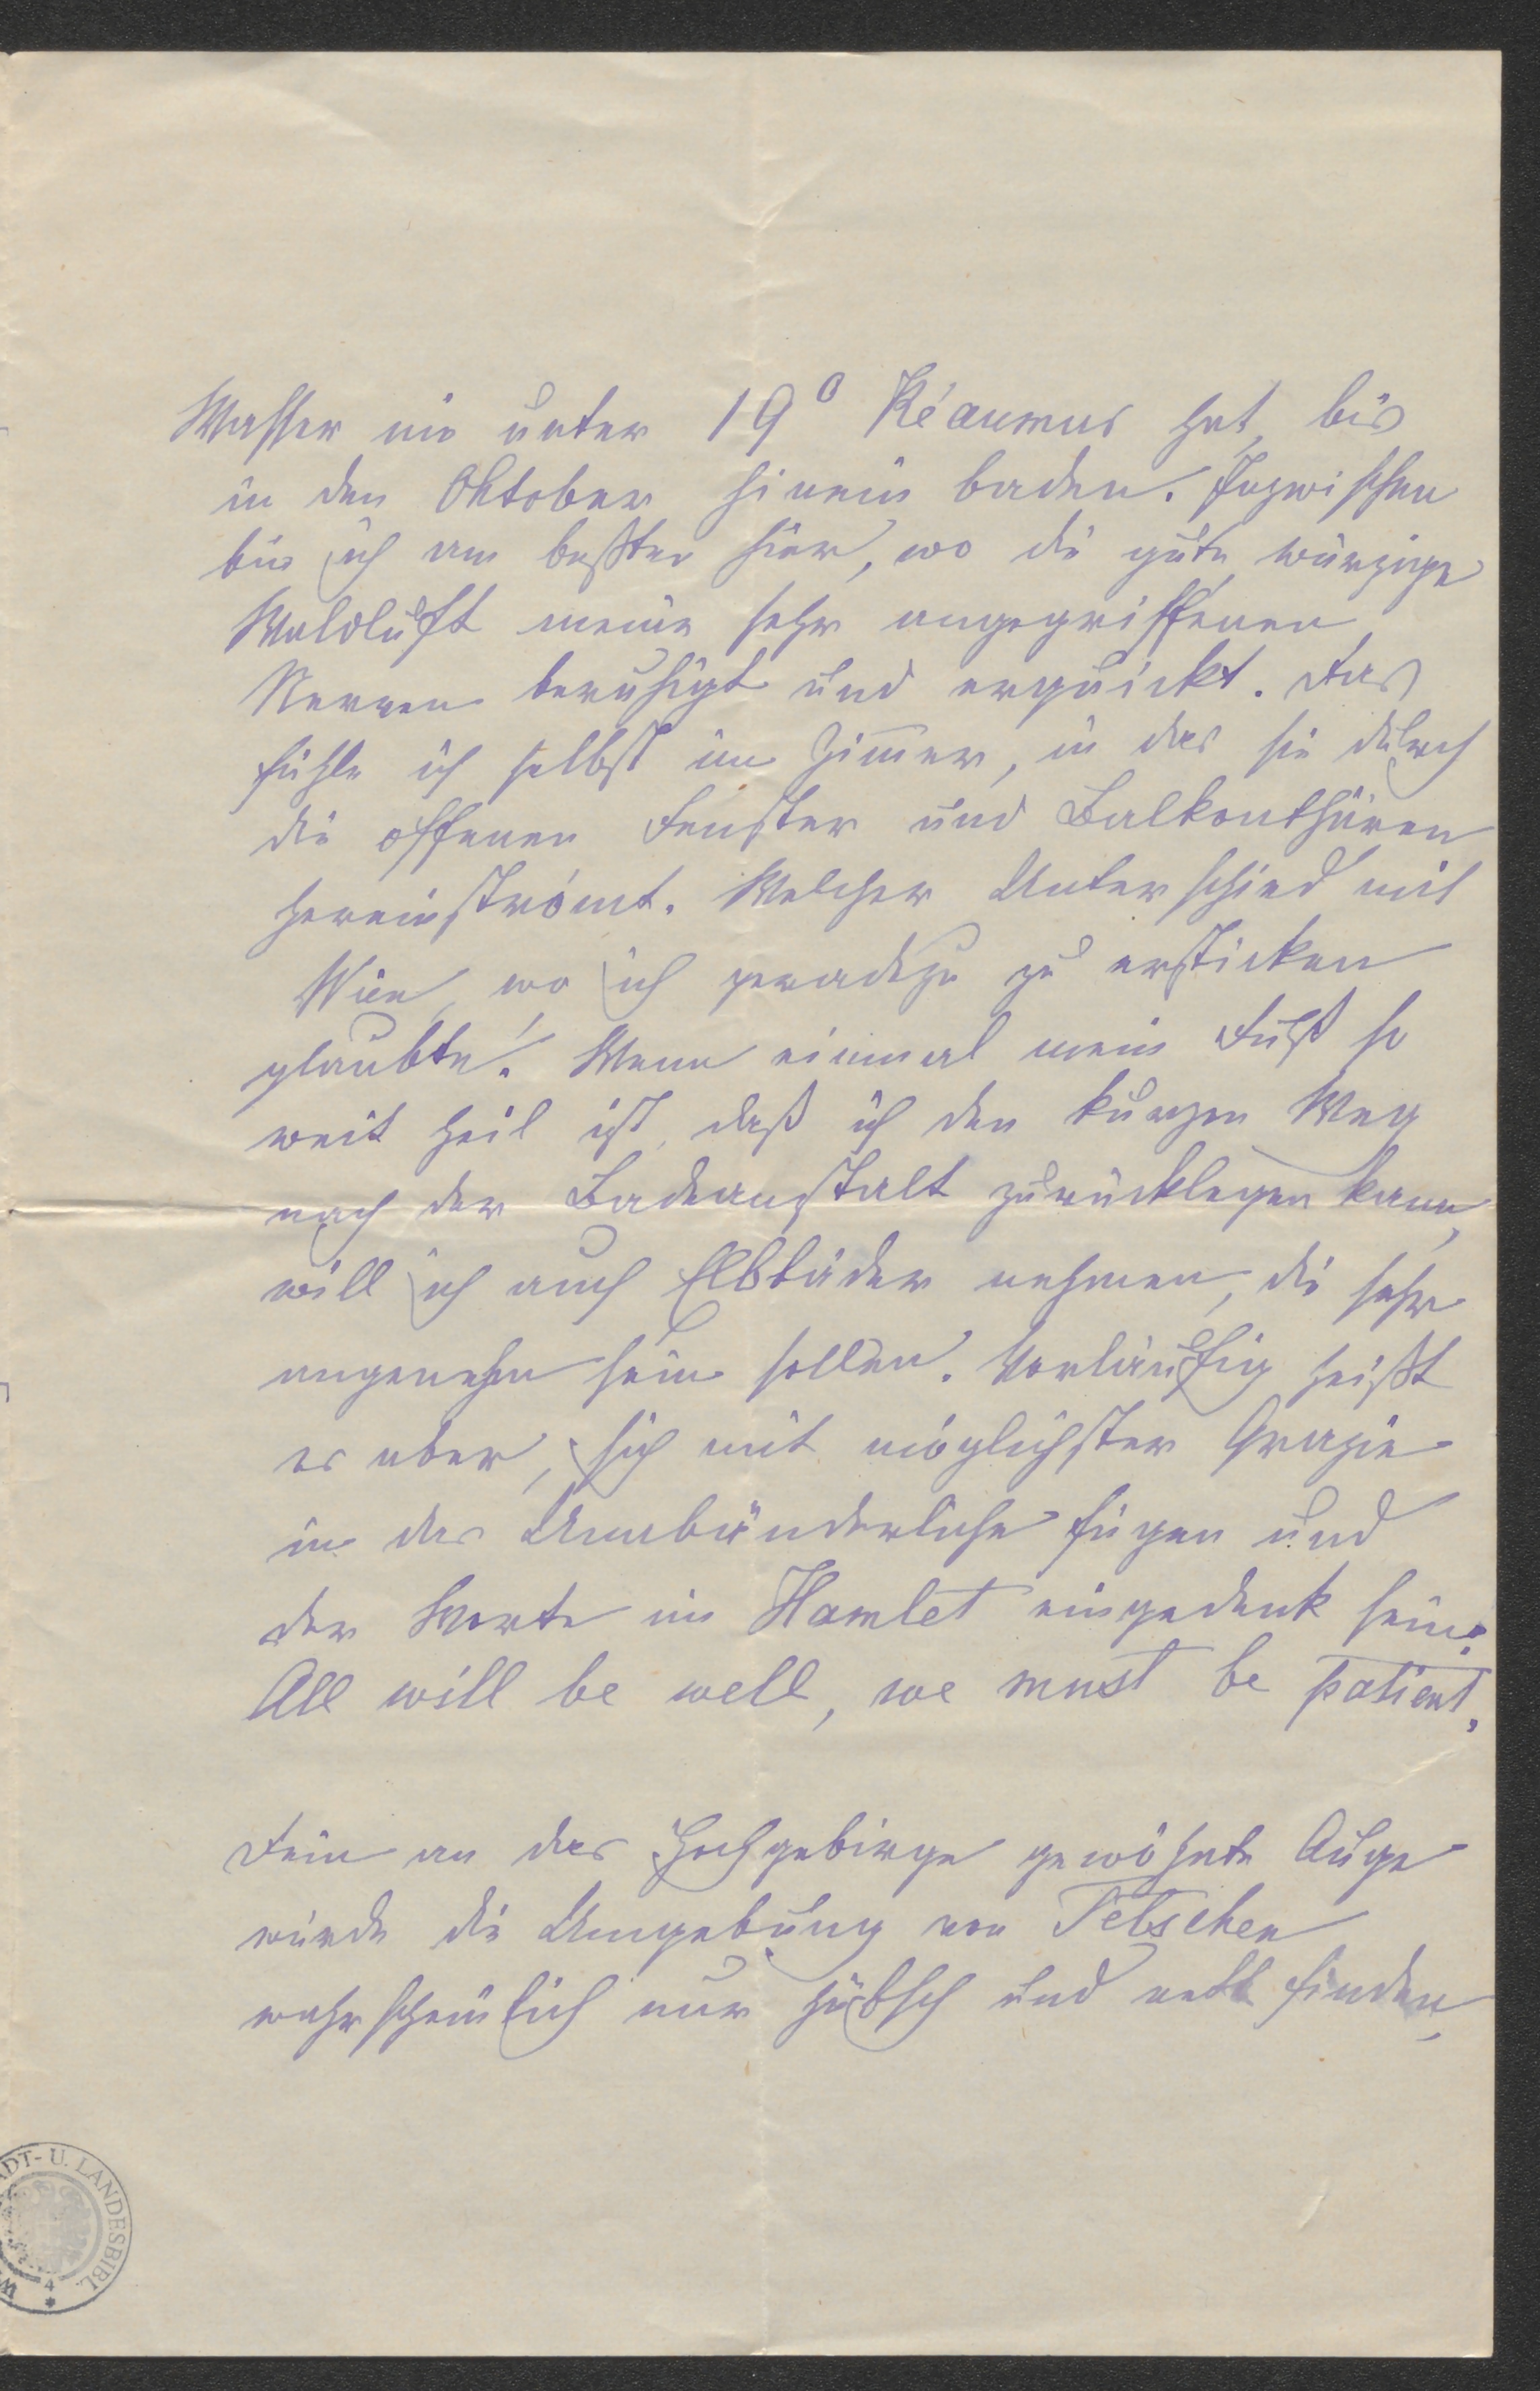 Wasser nie unter 19° Réaumur hat, bis
in den Oktober hinein baden. Inzwischen
bin ich am besten hier, wo die gute, würzige
Waldluft meine sehr angegriffenen
Nerven beruhigt und erquickt. Das
fühle ich selbst im Zimmer, in das sie durch
die offenen Fenster und Balkonthüren
hereinströmt. Welcher Unterschied mit
Wien, wo ich geradezu zu ersticken
glaubte! Wenn einmal mein Fuß so
weit heil ist, daß ich den kurzen Weg
nach der Badeanstalt zurücklegen kann,
will ich auch Elbbäder nehmen, die sehr
angenehm sein sollen. Vorläufig heißt
es aber, sich mit möglichster Grazie
in das Unabänderliche fügen und
der Worte im Hamlet eingedenk sein:
All will be well, we must be patient.
Dein an das Hochgebirge gewöhnte Auge
würde die Umgebung von Tetschen
wahrscheinlich nur hübsch und nett finden,
ADT- U. LANDESBIBL.
W
4
*